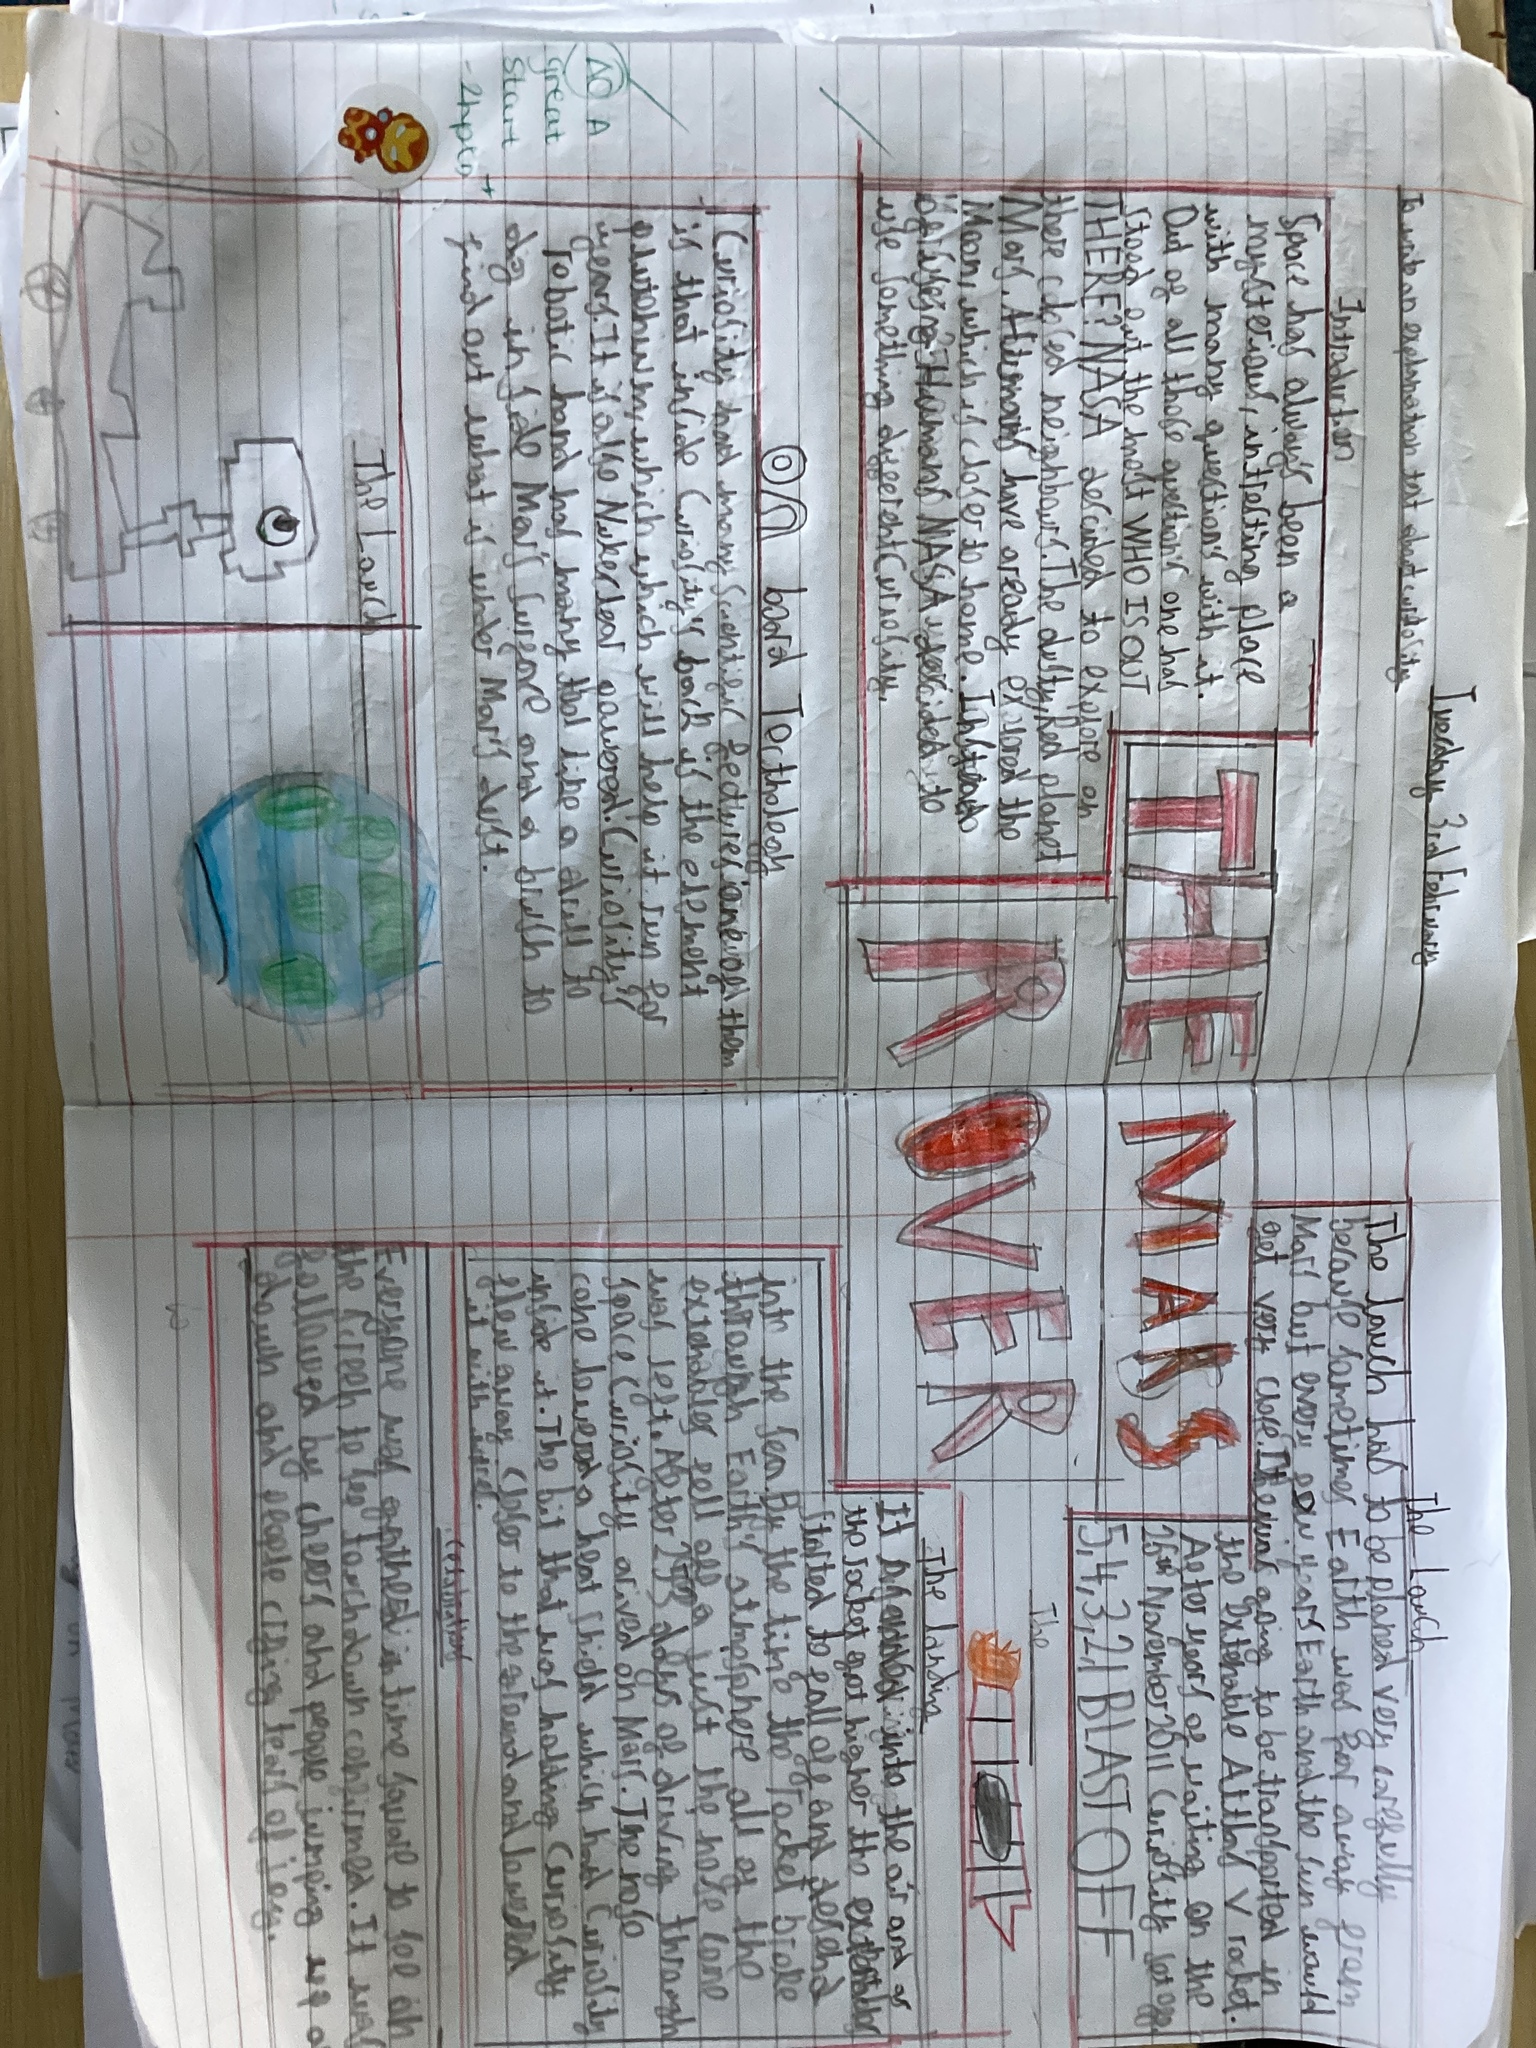 Tuesday 3rd February
To write an explanation text about curiosity
Introduction
Space has always been a
mysterious, intresting place
with many questions with it.
Out of all those question's one has
stood out the most WHO IS OUT
THERE? NASA descided to explore on
there colsed neighbour. The dusty, Red planet
Mars. Attemps have aready explored the
Moon, which is closer to home. Instead
of useing Humans NASA descided to
use something different Curiosity.
THE MARS
ROVER
On board Tecthology
Curiosity had many scientific fectures one of them
is that inside Curiosity's back is the element
plutohium, which which will help it run for
years. It is also Nukerlear powered. Curiosity's
robotic hand has many thol like a drill to
dig inside Mars surface and a brush to
find out what is under Mars dust.
AO A
great
start
- 2hpts +
The Lauch
The Lauch
The lauch has to be planed very carefully
because sometimes Earth was far away from
Mars but every years Earth and the sun would
get very close. It was going to be transported in
the Extenable Atlas V rocket.
After years of waiting on the
26th November 2011 Curiosity set off
5,4,3,2,1 BLAST OFF
The
The landing
It into the air and as
the rocket got higher the
started to fall off and desend
into the sea. By the time the rocket broke
through Earth's atmosphere all of the
fell off a just the nose cone
was left. After days of driving through
space Curiosity arived on Mars. The nose
cone lowered a heat shield which had Curiosity
inside it. The bit that was holding Curiosity
flew away closer to the ground and lowered
it with wires.
Everyone was in time square to see on
the screen to see touchdown confirmed. It was
followed by cheers and peope jumping up a
down and people crying tears of joy.